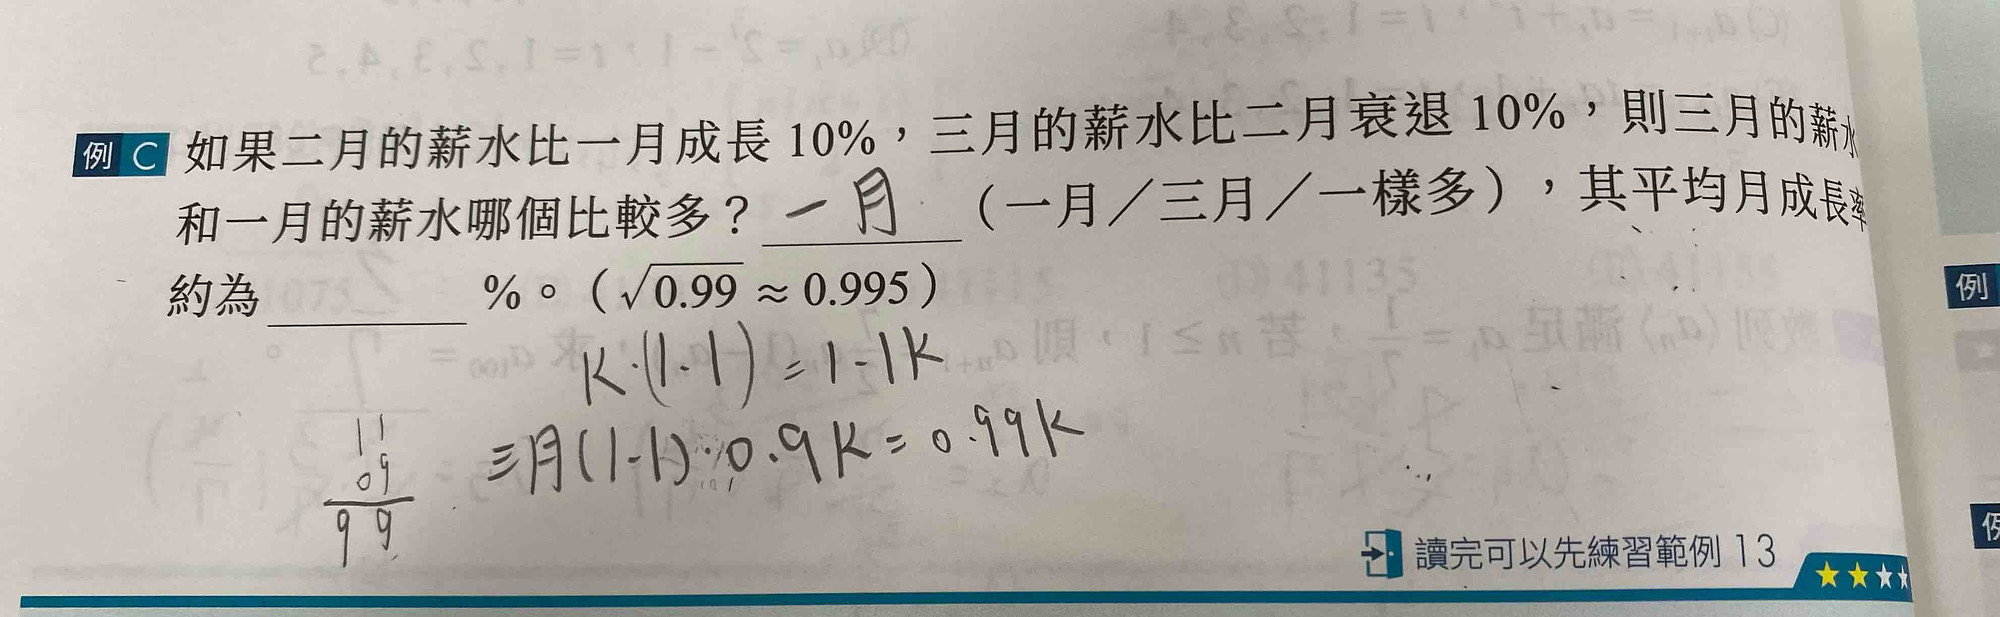 例 C 如果二月的薪水比一月成長 10%，三月的薪水比二月衰退 10%，則三月的薪水
和一月的薪水哪個比較多？一月（一月／三月／一樣多），其平均月成長率
約為 %。（√0.99 ≈ 0.995）
K·(1.1) = 1.1K
三月(1.1)·0.9K = 0.99K
11
09
99
讀完可以先練習範例 13
例